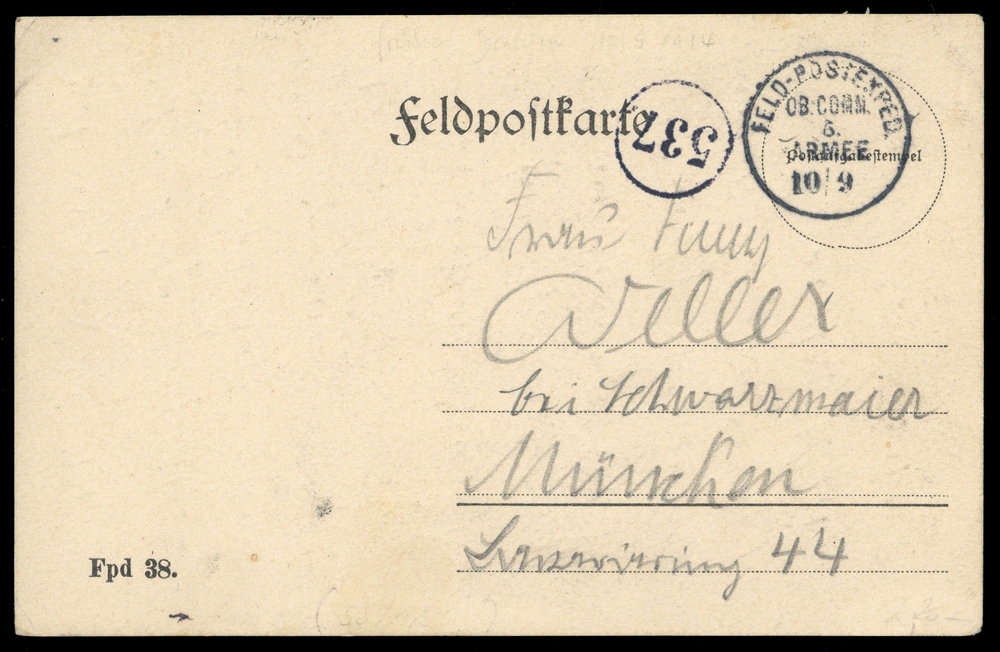 Feldpostkarte
537
FELD-POSTEXPED.
OB.COMM.
6.
ARMEE
10 9
Postaufgabestempel
Frau Fanny
Weller
bei Schwarzmaier
München
44
Fpd 38.